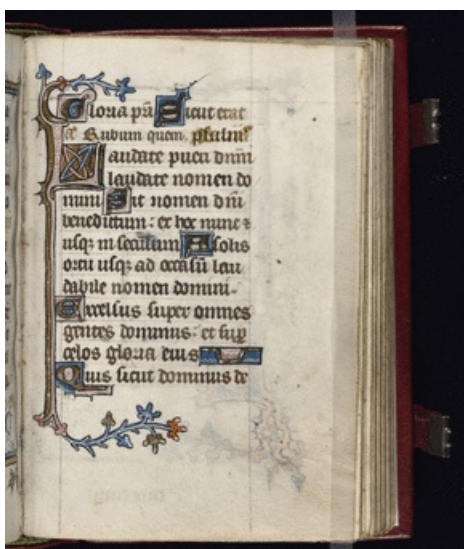 Gloria pri Sicut erat
Rubum quem. psalm
Laudate pueri dnm
laudate nomen do
mini Sit nomen dni
benedictum: ex hoc nunc &
usqz in seculum A solis
ortu usqz ad occasu lau
dabile nomen domini.
Excelsus super omnes
gentes dominus: et sup
celos gloria eius
Quis sicut dominus de